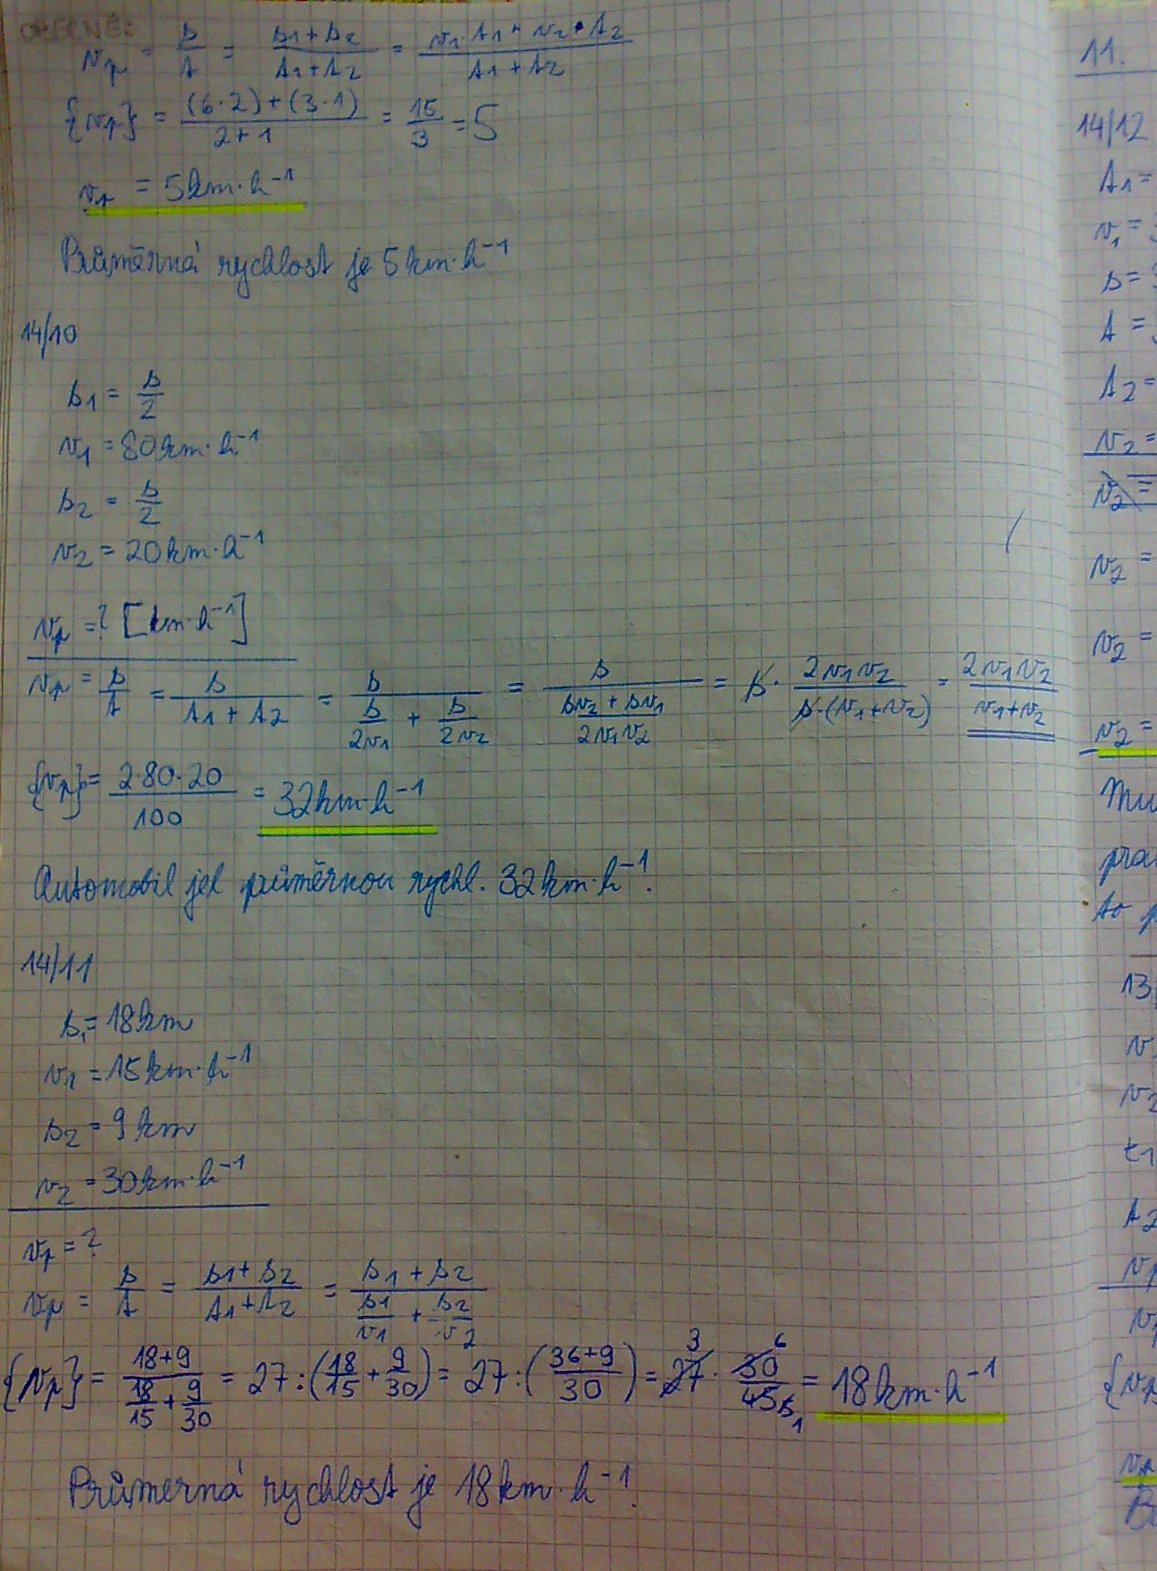 OBECNĚ:
v_p = s/t = (s1+s2)/(t1+t2) = (v1·t1+v2·t2)/(t1+t2)
{v_p} = ((6·2)+(3·1))/(2+1) = 15/3 = 5
v_p = 5km·h⁻¹
Průměrná rychlost je 5km·h⁻¹
14/10
s1 = s/2
v1 = 80km·h⁻¹
s2 = s/2
v2 = 20km·h⁻¹
v_p = ? [km·h⁻¹]
v_p = s/t = s/(t1+t2) = s/(s/2v1 + s/2v2) = s/((sv2+sv1)/2v1v2) = s· 2v1v2/(s·(v1+v2)) = 2v1v2/(v1+v2)
{v_p} = 2·80·20/100 = 32km·h⁻¹
Automobil jel průměrnou rychl. 32km·h⁻¹.
14/11
s1 = 18km
v1 = 15km·h⁻¹
s2 = 9km
v2 = 30km·h⁻¹
v_p = ?
v_p = s/t = (s1+s2)/(t1+t2) = (s1+s2)/(s1/v1 + s2/v2)
{v_p} = (18+9)/(18/15 + 9/30) = 27:(18/15 + 9/30) = 27:((36+9)/30) = 27 3 · 30 6/45 = 18km·h⁻¹
Průmerná rychlost je 18km·h⁻¹.
11.
14/12
t1 =
v1 = 3
s = 3
t =
t2 =
v2 =
v2 =
v2 =
v2 =
v2 =
13
v
v2
t1
t2
v_p
v_p
{v_p
v_p